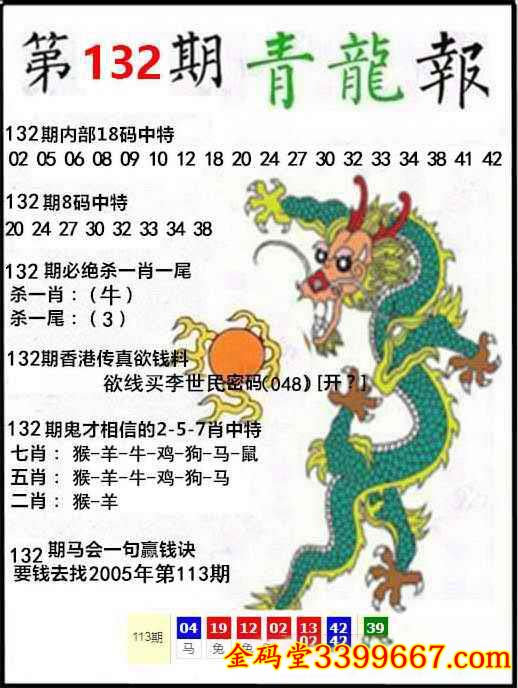 第132期 青龍報
132期内部18码中特
02 05 06 08 09 10 12 18 20 24 27 30 32 33 34 38 41 42
132期8码中特
20 24 27 30 32 33 34 38
132 期必绝杀一肖一尾
杀一肖：（牛）
杀一尾：（3）
132期香港传真欲钱料
欲线买李世民密码(048) [开？]
132期鬼才相信的2-5-7肖中特
七肖： 猴-羊-牛-鸡-狗-马-鼠
五肖： 猴-羊-牛-鸡-狗-马
二肖： 猴-羊
132期马会一句赢钱诀
要钱去找2005年第113期
113期 04 19 12 02 13 42 39
马 兔
02 42
金码堂3399667.com